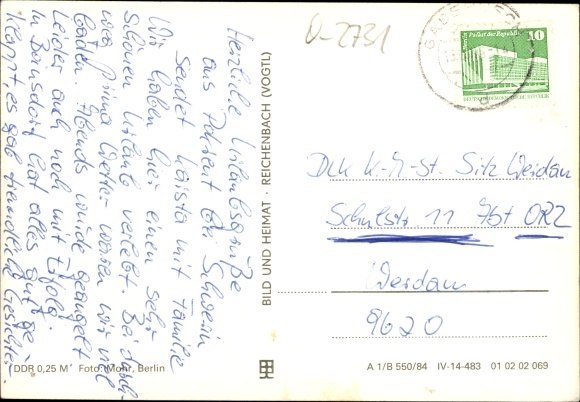 Herzliche Urlaubsgrüße
aus Pokrent bei Schwerin
sendet Krista mit Familie
Wir haben hier einen sehr
schönen Urlaub verlebt. Bei
was prima Wetter waren wir viel
baden. Abends wurde geangelt
Leider auch noch mit Erfolg.
In Bansdorf hat alles gut ge-
klappt, es gab freundliche Gesichter.
O-2731
BILD UND HEIMAT · REICHENBACH (VOGTL)
GADEBUSCH
Berlin Palast der Republik 10
DLK K-M-St. Sitz Werdau
Schulstr. 11 Abt ORZ
Werdau
9620
DDR 0,25 M Foto: Mohr, Berlin
A 1/B 550/84 IV-14-483 01 02 02 069